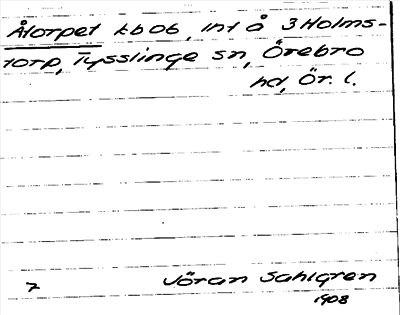 Åtorpet tb ob, int å 3 Holms-
torp, Tysslinge sn, Örebro
hd, Ör. l.
7 Jöran Sahlgren
1908